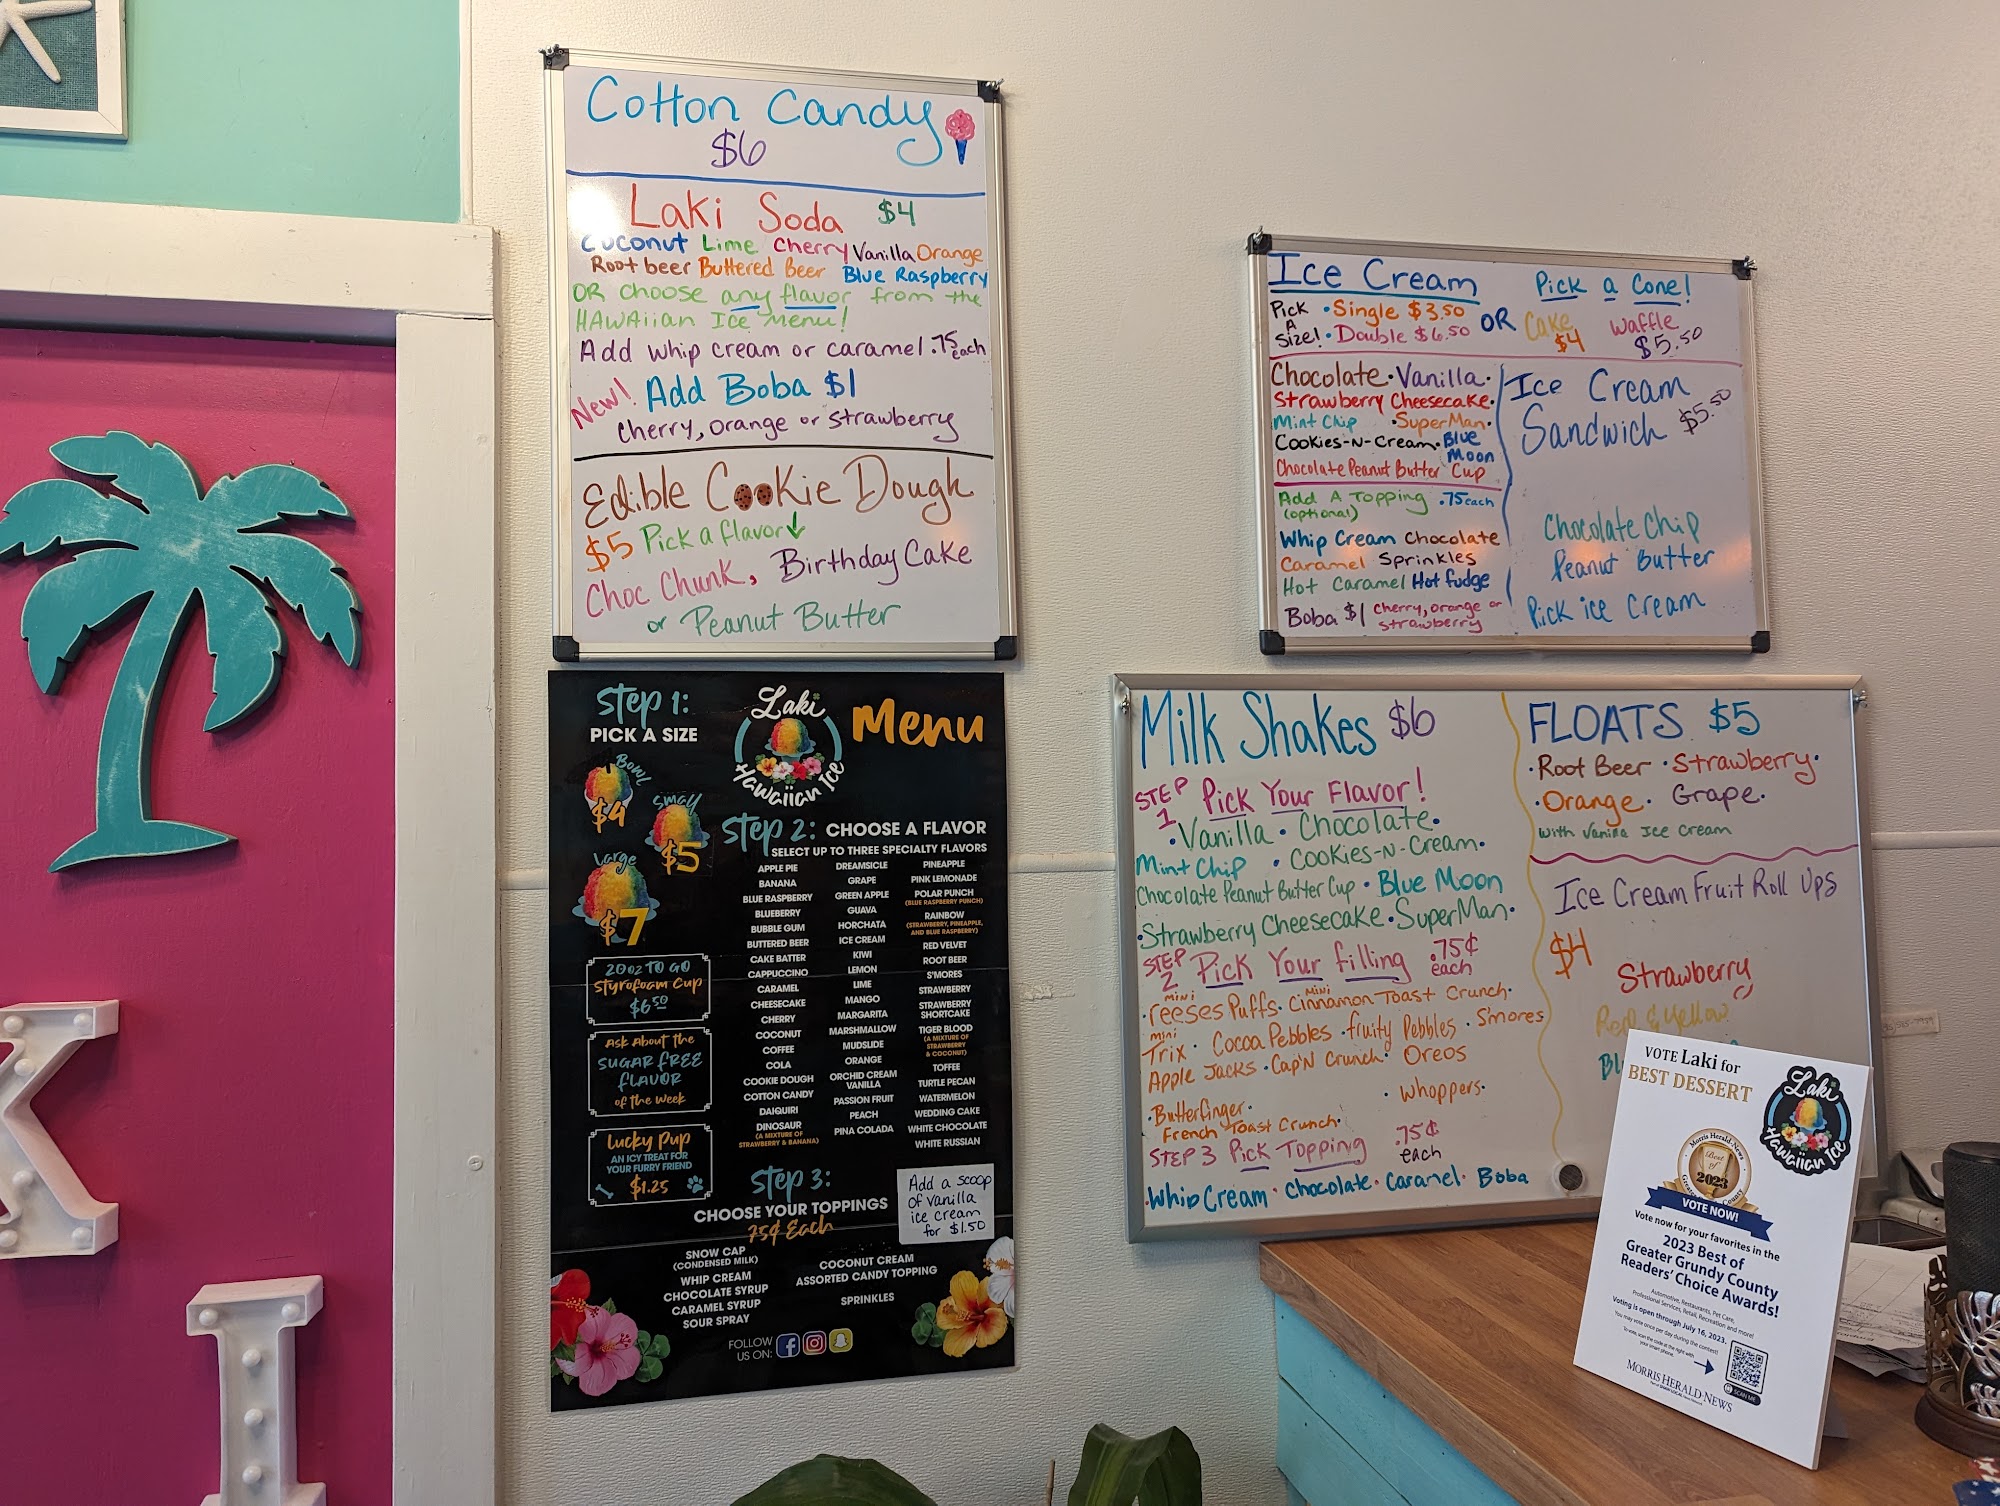 Cotton Candy
$6
Laki Soda $4
Coconut Lime Cherry Vanilla Orange
Root beer Buttered Beer Blue Raspberry
OR choose any flavor from the
HAWAiian Ice Menu!
Add whip cream or caramel .75 each
New! Add Boba $1
cherry, orange or strawberry
Edible Cookie Dough
$5 Pick a flavor
Choc Chunk, Birthday Cake
or Peanut Butter
Step 1:
PICK A SIZE
Bowl
$4
Small
$5
Large
$7
20oz TO GO
Styrofoam Cup
$6.50
Ask About the
SUGAR FREE
FLAVOR
of the Week
Lucky Pup
AN ICY TREAT FOR
YOUR FURRY FRIEND
$1.25
Laki
Hawaiian Ice
Menu
Step 2: CHOOSE A FLAVOR
SELECT UP TO THREE SPECIALTY FLAVORS
APPLE PIE
BANANA
BLUE RASPBERRY
BLUEBERRY
BUBBLE GUM
BUTTERED BEER
CAKE BATTER
CAPPUCCINO
CARAMEL
CHEESECAKE
CHERRY
COCONUT
COFFEE
COLA
COOKIE DOUGH
COTTON CANDY
DAIQUIRI
DINOSAUR
(A MIXTURE OF
STRAWBERRY & BANANA)
DREAMSICLE
GRAPE
GREEN APPLE
GUAVA
HORCHATA
ICE CREAM
KIWI
LEMON
LIME
MANGO
MARGARITA
MARSHMALLOW
MUDSLIDE
ORANGE
ORCHID CREAM
VANILLA
PASSION FRUIT
PEACH
PINA COLADA
PINEAPPLE
PINK LEMONADE
POLAR PUNCH
(BLUE RASPBERRY PUNCH)
RAINBOW
(STRAWBERRY, PINEAPPLE,
AND BLUE RASPBERRY)
RED VELVET
ROOT BEER
S'MORES
STRAWBERRY
STRAWBERRY
SHORTCAKE
TIGER BLOOD
(A MIXTURE OF
STRAWBERRY
& COCONUT)
TOFFEE
TURTLE PECAN
WATERMELON
WEDDING CAKE
WHITE CHOCOLATE
WHITE RUSSIAN
Step 3:
CHOOSE YOUR TOPPINGS
75¢ Each
SNOW CAP
(CONDENSED MILK)
WHIP CREAM
CHOCOLATE SYRUP
CARAMEL SYRUP
SOUR SPRAY
COCONUT CREAM
ASSORTED CANDY TOPPING
SPRINKLES
Add a scoop
of vanilla
ice cream
for $1.50
FOLLOW
US ON:
Ice Cream
Pick A size! • Single $3.50
• Double $6.50
OR
Pick a Cone!
Cake $4
Waffle $5.50
Chocolate • Vanilla •
Strawberry Cheesecake •
Mint Chip • SuperMan •
Cookies-N-Cream • Blue Moon
Chocolate Peanut Butter Cup
Add A Topping .75 each
(optional)
Whip Cream Chocolate
Caramel Sprinkles
Hot Caramel Hot fudge
Boba $1 cherry, orange or
strawberry
Ice Cream
Sandwich $5.50
Chocolate Chip
Peanut Butter
Pick ice cream
Milk Shakes $6
STEP 1 Pick Your Flavor!
• Vanilla • Chocolate •
Mint Chip • Cookies-N-Cream •
Chocolate Peanut Butter Cup • Blue Moon
• Strawberry Cheesecake • SuperMan •
STEP 2 Pick Your filling .75¢ each
mini reeses Puffs • mini Cinnamon Toast Crunch •
mini Trix • Cocoa Pebbles • fruity Pebbles • S'mores
Apple Jacks • Cap'N Crunch • Oreos
• Butterfinger • • Whoppers •
French Toast Crunch •
STEP 3 Pick Topping .75¢ each
• Whip Cream • Chocolate • Caramel • Boba
FLOATS $5
• Root Beer • Strawberry •
• Orange • Grape •
with Vanilla Ice Cream
Ice Cream Fruit Roll Ups
$4
Strawberry
Red & Yellow
VOTE Laki for
BEST DESSERT
Laki
Hawaiian Ice
Morris Herald-News
Best of
2023
VOTE NOW!
Vote now for your favorites in the
2023 Best of
Greater Grundy County
Readers' Choice Awards!
Automotive, Restaurants, Pet Care,
Professional Services, Retail, Recreation and more!
Voting is open through July 16, 2023.
You may vote once per day during the contest!
To vote, scan the code at the right with
your smart phone.
MORRIS HERALD-NEWS
SCAN ME
K
I